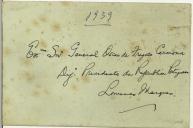 1939
Exmo Snr General Oscar de Fragoso Carmona
Dig. Presidente da República Portuguesa
Lourenço Marques